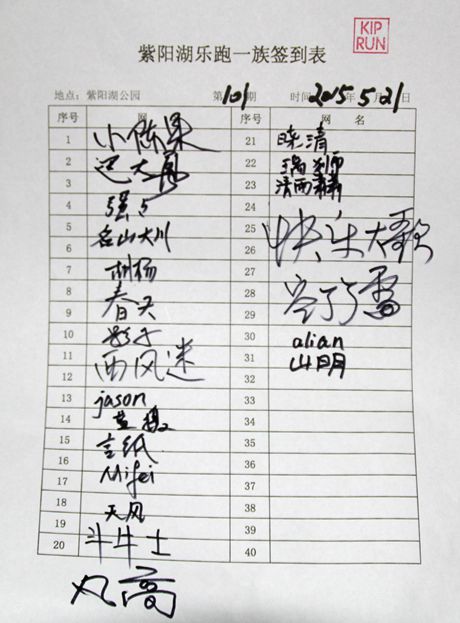 KIP
RUN
紫阳湖乐跑一族签到表
地点：紫阳湖公园 第101期 时间2015年5月21日
序号 网 序号 网 名
1 小陈果 21 晓清
2 22 瑞狮
3 大 23 清雨霖
4 强 24
5 名山大川 25 快乐大歌
6 26
7 胡杨 27
8 春天 28
9 29
10 影子 30 alian
11 西风迷 31 山明
12 32
13 jason 33
14 34
15 言纸 35
16 Mifei 36
17 37
18 天风 38
19 39
20 斗牛士 40